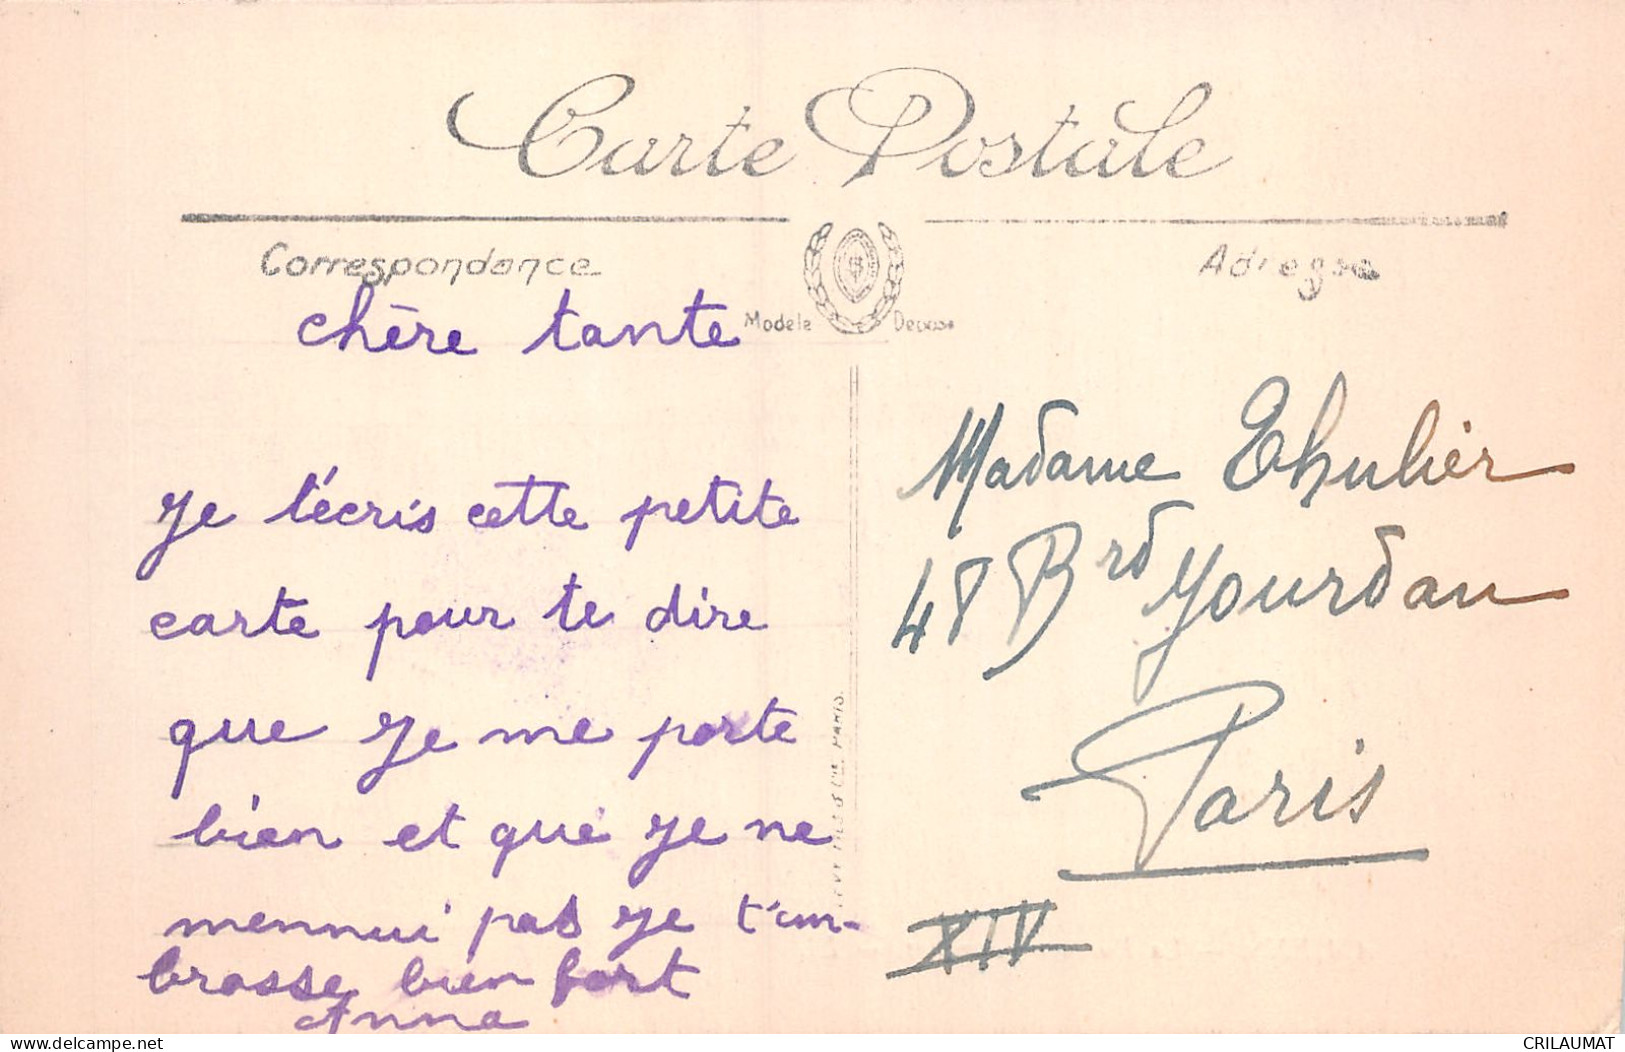 Carte Postale
Correspondance
Adresse
Modele Déposé
chère tante
je t'écris cette petite
carte pour te dire
que je me porte
bien et que je ne
mennui pas je t'em-
brasse bien fort
Anna
Madame Thulier
48 Brd Jourdan
Paris
XIV
LEVY FILS & CIE. PARIS.
www.delcampe.net
CRILAUMAT